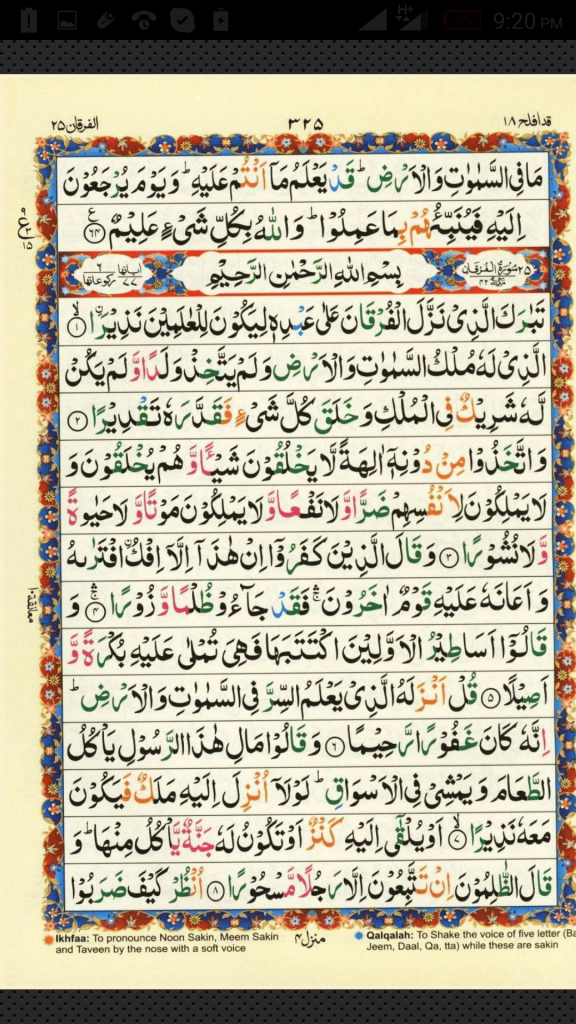 H+ 9:20 PM
قد افلح ۱۸ ۳۲۵ الفرقان ۲۵
مَا فِی السَّمٰوٰتِ وَالْاَرْضِ ؕ قَدْ یَعْلَمُ مَاۤ اَنْتُمْ عَلَیْهِ ؕ وَیَوْمَ یُرْجَعُوْنَ
اِلَیْهِ فَیُنَبِّئُهُمْ بِمَا عَمِلُوْا ؕ وَاللّٰهُ بِكُلِّ شَیْءٍ عَلِیْمٌ ﴿۶۴﴾
۲۵ سُوْرَةُ الْفُرْقَانِ مَكِّیَّةٌ ۴۲ بِسْمِ اللّٰهِ الرَّحْمٰنِ الرَّحِیْمِ اٰیاتها ۷۷ ركوعاتها ۶
تَبٰرَكَ الَّذِیْ نَزَّلَ الْفُرْقَانَ عَلٰی عَبْدِهٖ لِیَكُوْنَ لِلْعٰلَمِیْنَ نَذِیْرًا ﴿۱﴾ۙ
الَّذِیْ لَهٗ مُلْكُ السَّمٰوٰتِ وَالْاَرْضِ وَلَمْ یَتَّخِذْ وَلَدًا وَّلَمْ یَكُنْ
لَّهٗ شَرِیْكٌ فِی الْمُلْكِ وَخَلَقَ كُلَّ شَیْءٍ فَقَدَّرَهٗ تَقْدِیْرًا ﴿۲﴾
وَاتَّخَذُوْا مِنْ دُوْنِهٖۤ اٰلِهَةً لَّا یَخْلُقُوْنَ شَیْـًٔا وَّهُمْ یُخْلَقُوْنَ وَ
لَا یَمْلِكُوْنَ لِاَنْفُسِهِمْ ضَرًّا وَّلَا نَفْعًا وَّلَا یَمْلِكُوْنَ مَوْتًا وَّلَا حَیٰوةً
وَّلَا نُشُوْرًا ﴿۳﴾ وَقَالَ الَّذِیْنَ كَفَرُوْۤا اِنْ هٰذَاۤ اِلَّاۤ اِفْكُ اۨفْتَرٰىهُ
وَاَعَانَهٗ عَلَیْهِ قَوْمٌ اٰخَرُوْنَ ۛۚ فَقَدْ جَآءُوْ ظُلْمًا وَّزُوْرًا ﴿۴﴾ۛۚ وَ
قَالُوْۤا اَسَاطِیْرُ الْاَوَّلِیْنَ اكْتَتَبَهَا فَهِیَ تُمْلٰی عَلَیْهِ بُكْرَةً وَّ
اَصِیْلًا ﴿۵﴾ قُلْ اَنْزَلَهُ الَّذِیْ یَعْلَمُ السِّرَّ فِی السَّمٰوٰتِ وَالْاَرْضِ ؕ
اِنَّهٗ كَانَ غَفُوْرًا رَّحِیْمًا ﴿۶﴾ وَقَالُوْا مَالِ هٰذَا الرَّسُوْلِ یَاْكُلُ
الطَّعَامَ وَیَمْشِیْ فِی الْاَسْوَاقِ ؕ لَوْلَاۤ اُنْزِلَ اِلَیْهِ مَلَكٌ فَیَكُوْنَ
مَعَهٗ نَذِیْرًا ﴿۷﴾ۙ اَوْ یُلْقٰۤی اِلَیْهِ كَنْزٌ اَوْ تَكُوْنُ لَهٗ جَنَّةٌ یَّاْكُلُ مِنْهَا ؕ وَ
قَالَ الظّٰلِمُوْنَ اِنْ تَتَّبِعُوْنَ اِلَّا رَجُلًا مَّسْحُوْرًا ﴿۸﴾ اُنْظُرْ كَیْفَ ضَرَبُوْا
معانقة ۱۰
منزل ۴
Ikhfaa: To pronounce Noon Sakin, Meem Sakin
and Taveen by the nose with a soft voice
Qalqalah: To Shake the voice of five letter (Ba
Jeem, Daal, Qa, tta) while these are sakin